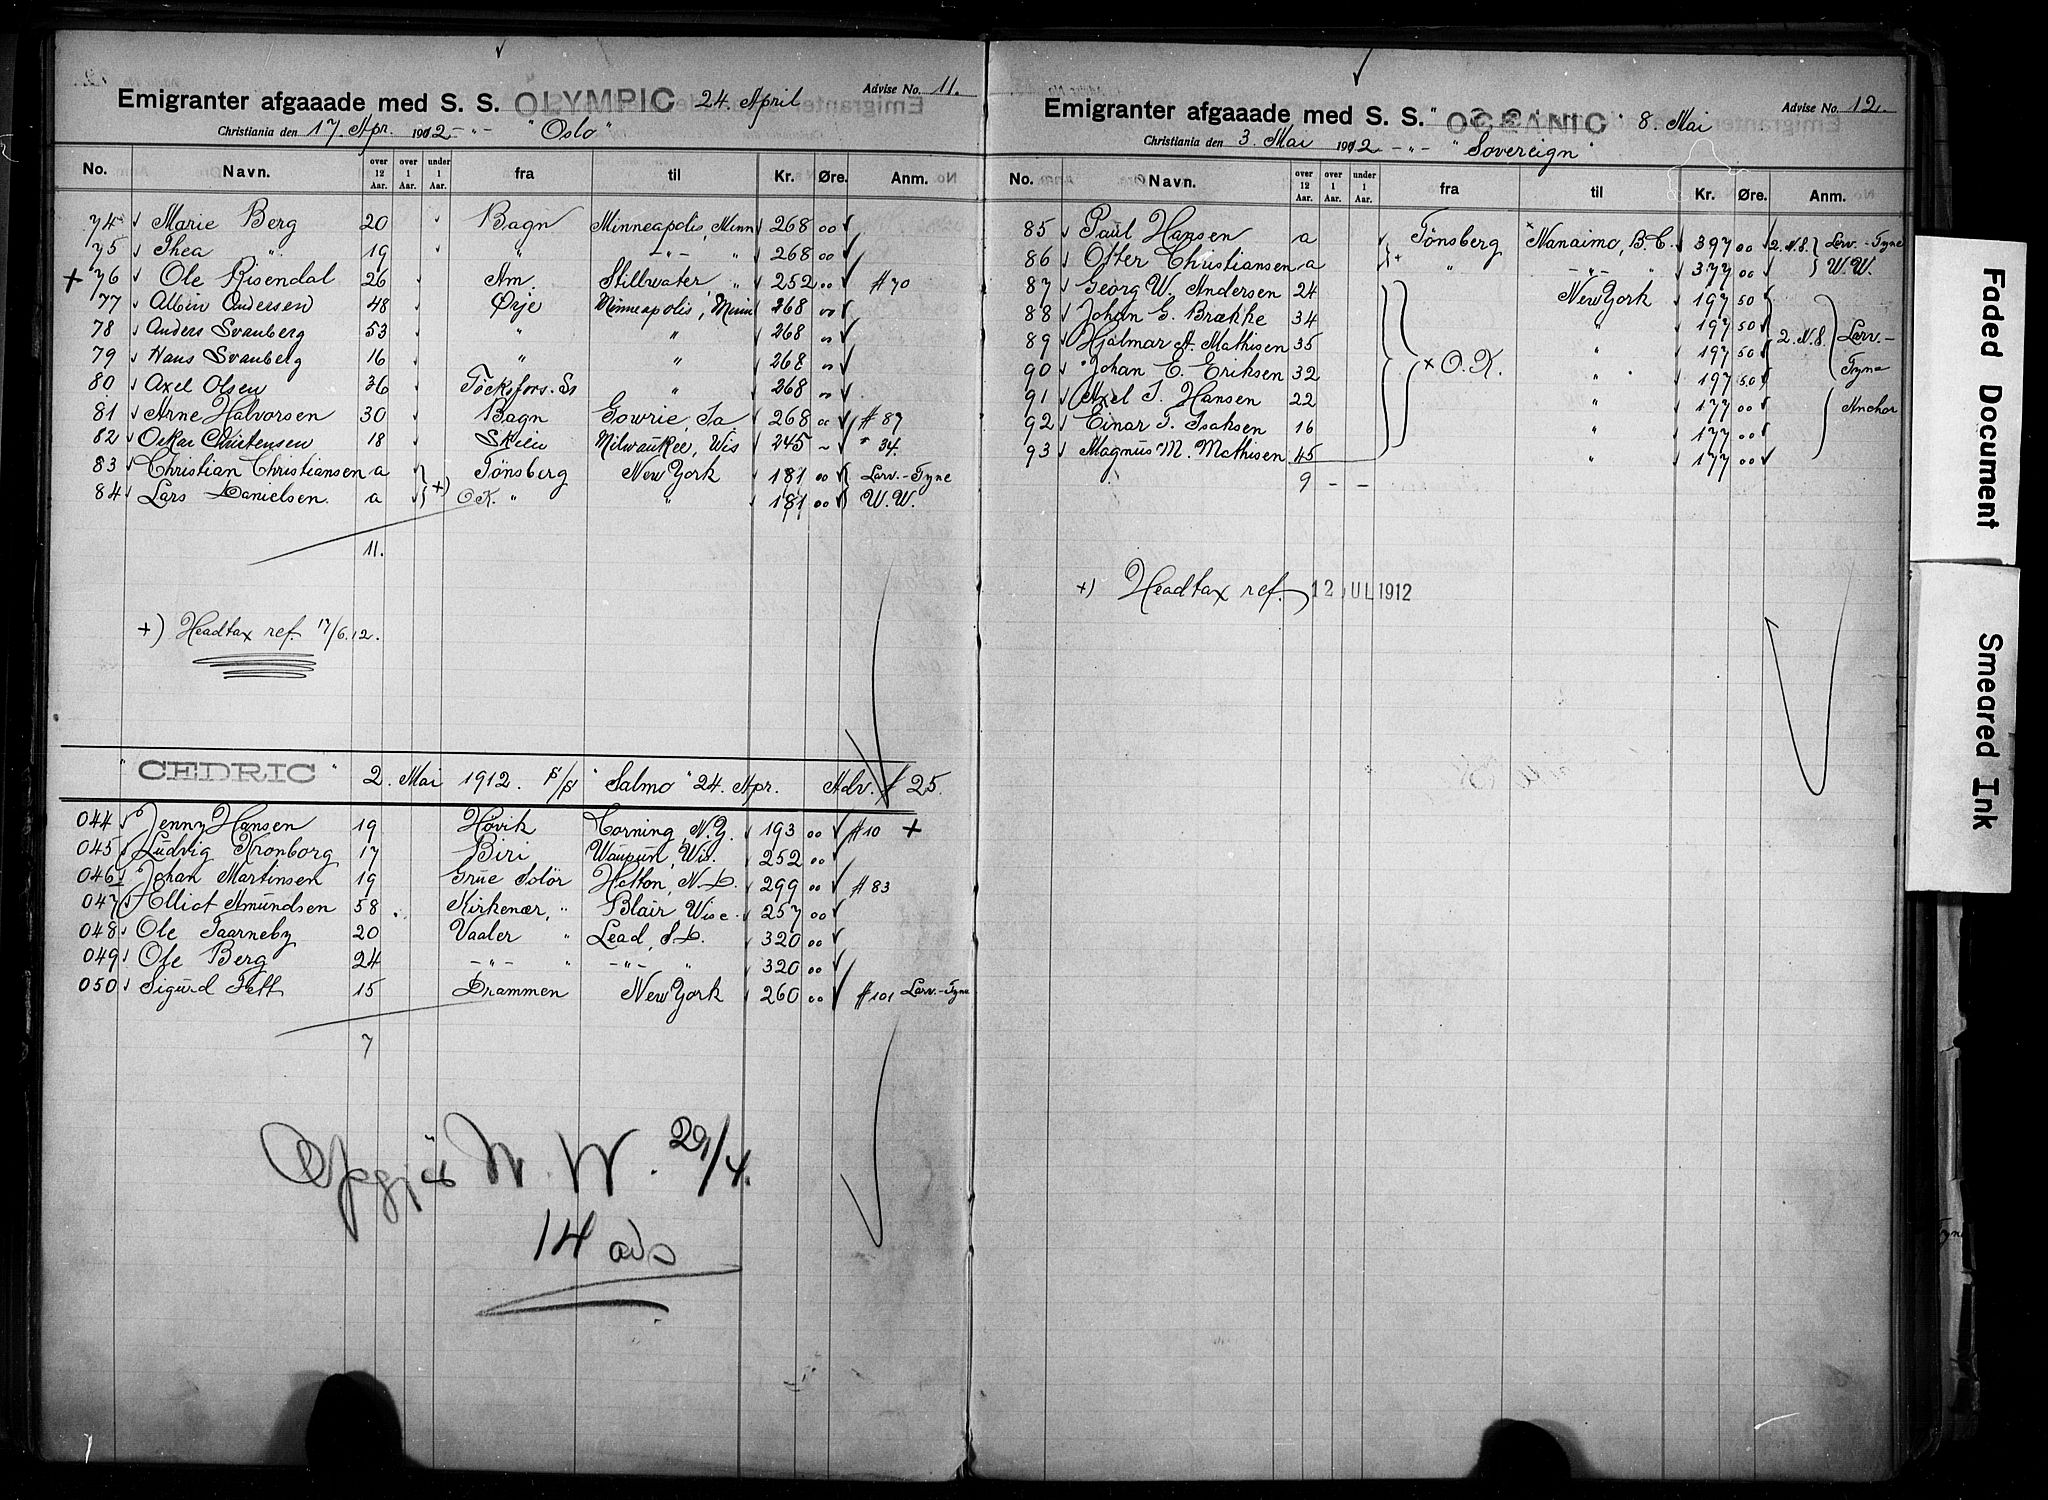 Emigranter afgaaade med S. S. OLYMPIC 24. April Advise No. 11.
Christiania den 17. Apr. 1912 -"- "Oslo"
No. Navn. over 12 Aar. over 1 Aar. under 1 Aar. fra til Kr. Øre. Anm.
74 Marie Berg 20 Bagn Minneapolis, Minn 268 00
75 Thea " 19 " -"- " 268 00
+ 76 Ole Risendal 26 Am. Stillwater, " 252 00 # 70
77 Albin Andersen 48 Ørje Minneapolis, Minn 268 00
78 Anders Svanberg 53 " " 268 "
79 Hans Svanberg 16 " " 268 "
80 Axel Olsen 36 Töcksfors. Ss " 268 "
81 Arne Halvorsen 30 Bagn Gowrie, Ia 268 00 # 87
82 Oskar Christensen 18 Skien Milwaukee, Wis 245 - " 34.
83 Christian Christiansen a } +) Tönsberg New York 181 00 } Larv.-Tyne
84 Lars Danielsen. a O.K. " " 181 00 W. W.
11.
+) Headtax ref. 17/6.12.
"CEDRIC" 2. Mai 1912. p/p "Salmo" 24. Apr. Adv. # 25.
044 Jenny Hansen 19 Høvik Corning, N.Y. 193 00 #10 +
045 Ludvig Kronborg 17 Biri Waupun, Wis. 252 00
046 Johan Martinsen 19 Grue Solör Hatton, N.D. 299 00 # 83
047 Elliot Amundsen 58 Kirkenær, " Blair Wisc. 257 00
048 Ole Taarneby 20 Vaaler " Lead, S.D. 320 00
049 Ole Berg 24 -"- " -"- " 320 00
050 Sigurd Fett 15 Drammen New York 260 00 #101 Larv.-Tyne
7
Opgjör W. W. 29/4.
14 adv
Emigranter afgaaade med S. S. "OCEANIC" 8. Mai Advise No. 12.
Christiania den 3. Mai 1912 -"- "Sovereign"
No. Navn. over 12 Aar. over 1 Aar. under 1 Aar. fra til Kr. Øre. Anm.
85 Paul Hansen a Tönsberg × Nanaimo, B.C. 397 00 2. N.S. } Larv.-Tyne
86 Ofter Christiansen a } + " -"- " 377 00 } W. W.
87 Georg W. Andersen 24 New York 197 50
88 Johan G. Brække 34 " 197 50
89 Hjalmar A. Mathisen 35 " 197 50 2. N.S. Larv.-
90 Johan E. Eriksen 32 × O. K. " 197 50 Tyne
91 Axel I. Hansen 22 " 177 00
92 Einar T. Isaksen 16 " 177 00 Anchor
93 Magnus M. Mathisen 45 " 177 00
9 - -
+) Headtax ref. 12 JUL 1912
Faded Document
Smeared Ink